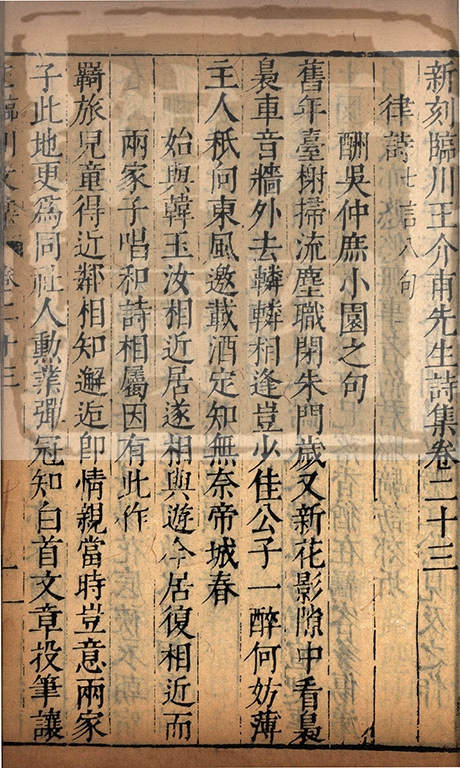 新刻臨川王介甫先生詩集卷二十三
律詩七言八句
酬吳仲庶小園之句
舊年臺榭掃流塵職閉朱門歲又新花影隙中看裊
裊車音牆外去轔轔相逢豈少佳公子一醉何妨薄
主人秪向東風邀載酒定知無奈帝城春
始與韓玉汝相近居遂相與遊今居復相近而
兩家子唱和詩相屬因有此作
羇旅兒童得近鄰相知邂逅即情親當時豈意兩家
子此地更爲同社人勳業彈冠知白首文章投筆讓